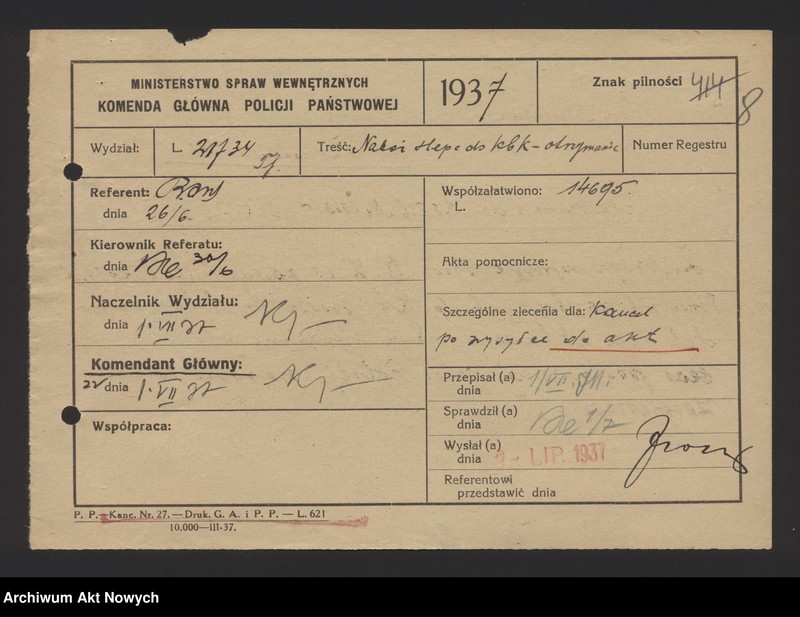 MINISTERSTWO SPRAW WEWNĘTRZNYCH
KOMENDA GŁÓWNA POLICJI PAŃSTWOWEJ
1937
Znak pilności
8
Wydział:
L. 21734
Treść: ślepe do kbk - otrzymanie
Numer Regestru
Referent:
dnia 26/6.
Kierownik Referatu:
dnia 30/6
Naczelnik Wydziału:
dnia 1.VII 37
Komendant Główny:
dnia 1.VII 37
Współpraca:
Współzałatwiono: 14695.
L.
Akta pomocnicze:
Szczególne zlecenia dla: Kancel
po wysyłce do akt
Przepisał (a) 1/VII.
dnia
Sprawdził (a) 1/7
dnia
Wysłał (a)
dnia LIP. 1937
Referentowi
przedstawić dnia
P. P.—Kanc. Nr. 27.—Druk. G. A. i P. P. — L. 621
10.000—III-37.
Archiwum Akt Nowych